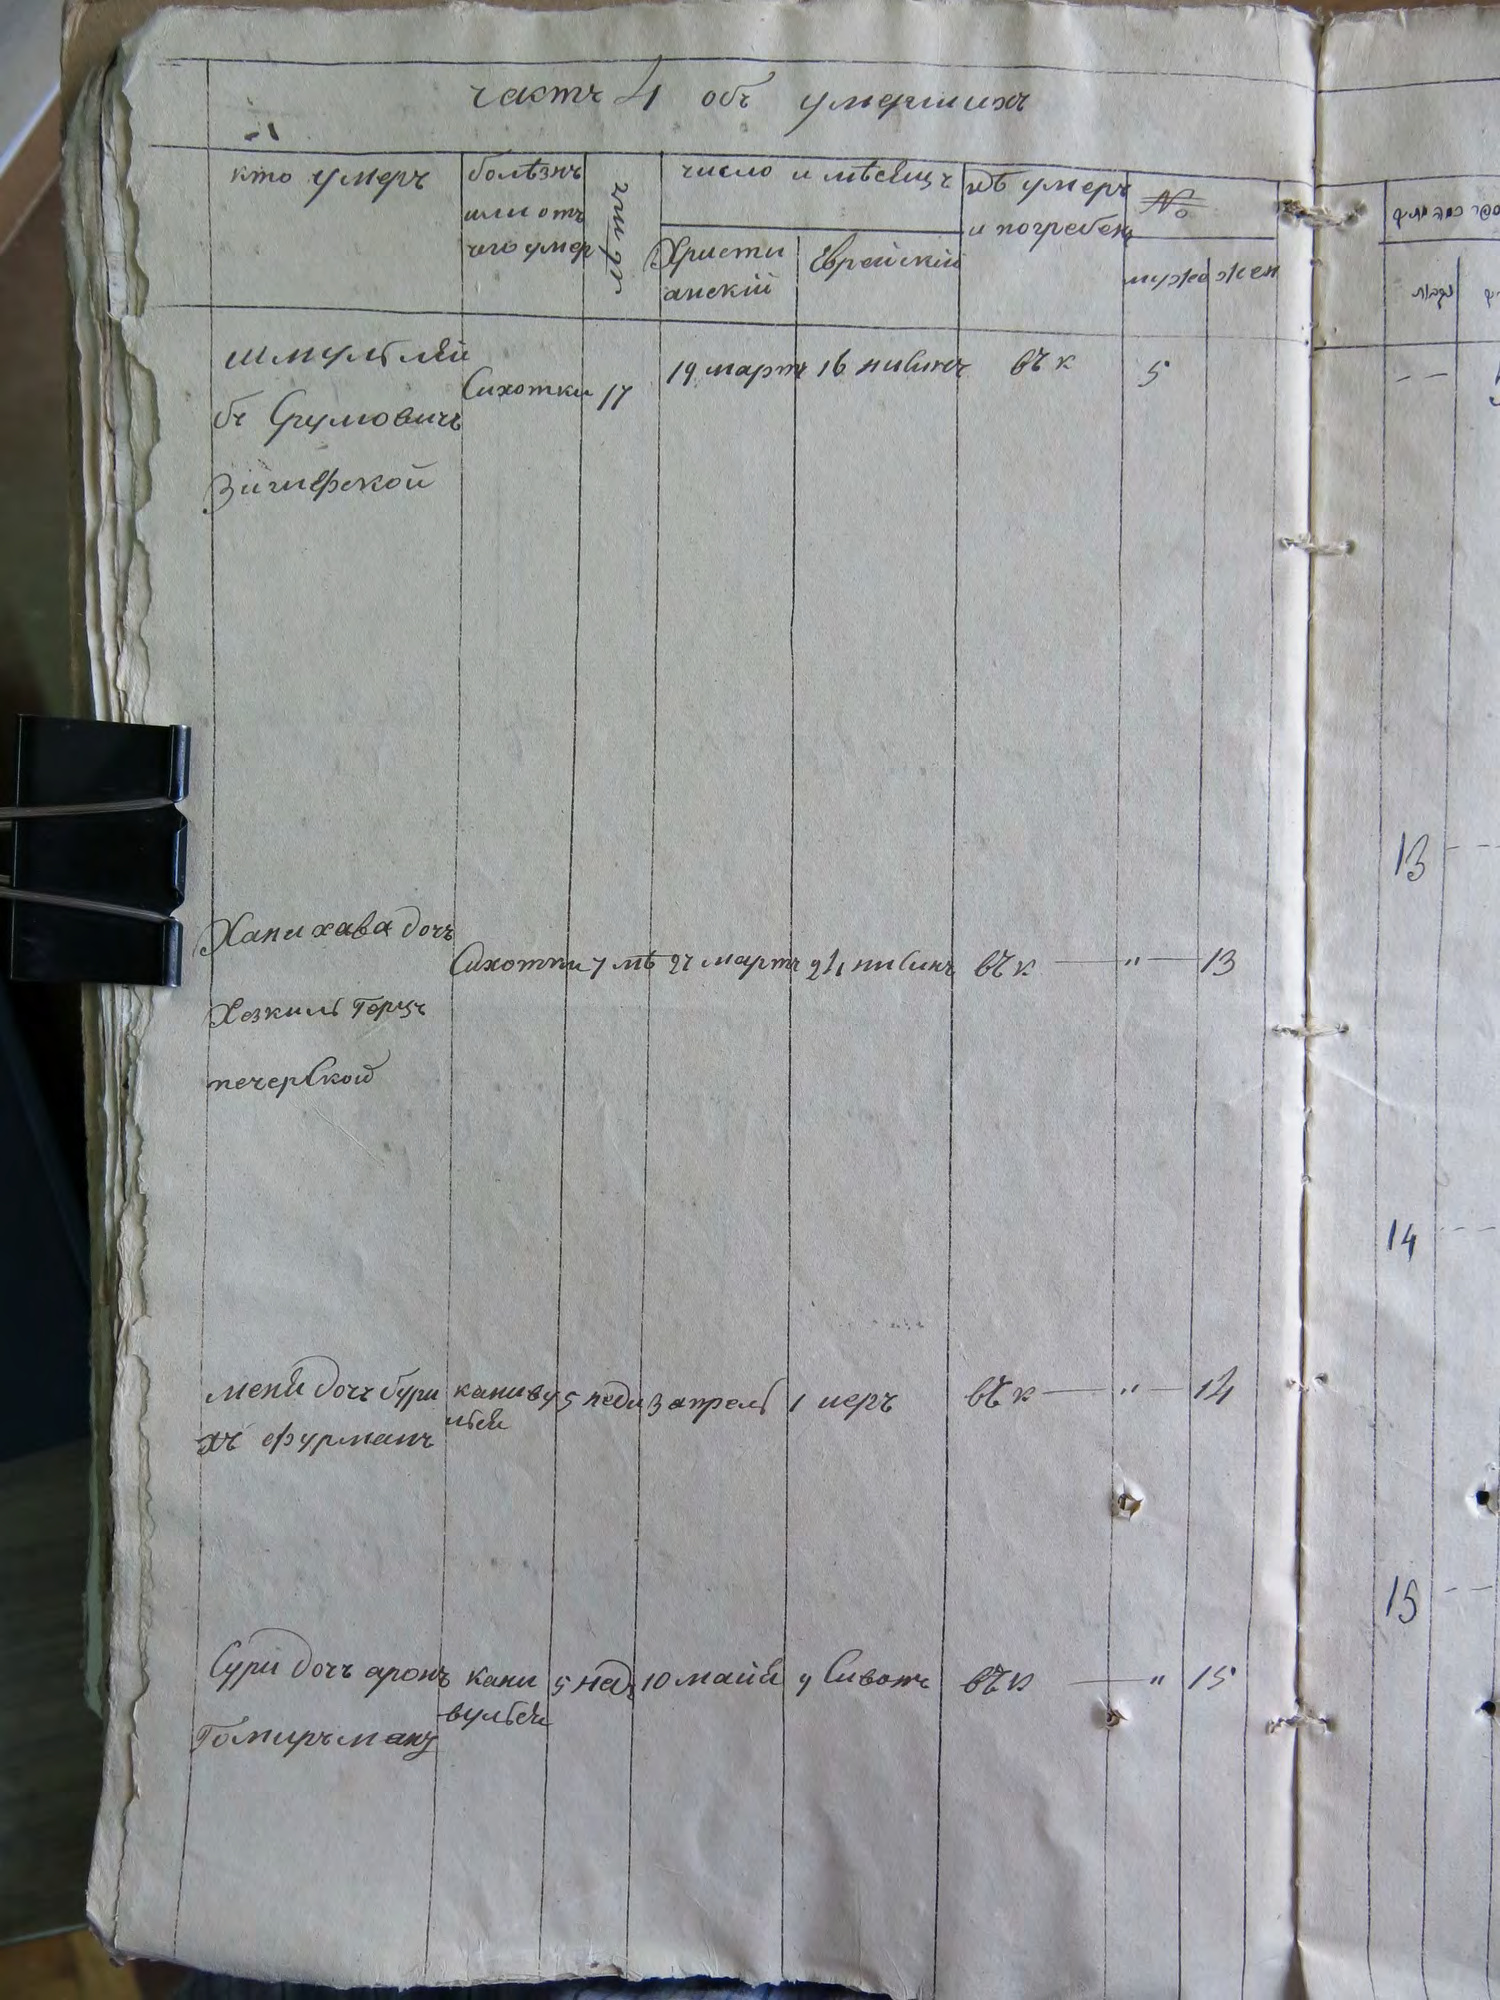 часть 4 объ умершихъ
кто умеръ
болѣзнь
или отъ
чего умер
число и мѣсяцъ
Христи
анскій
Еврейскій
гдѣ умеръ
и погребен
№
муже
жен
Шмуль лей
бъ Срумовичъ
Сихотки
17
19 мартъ
16 нисинъ
въ к
5
Хани хава дочъ
Хезкиль Герцъ
печерской
Сихотки
7 мѣ
27 мартъ
24 нисинъ
въ к — " — 13
мени дочъ бури
хъ фурманъ
канву
льсеи
5 неди
3 апрель
1 иеръ
въ к — " — 14
Сури дочъ аронъ
Гомиръманъ
кани
вульсеи
5 нед
10 майи
9 Сивонъ
въ к — " 15
13
14
15